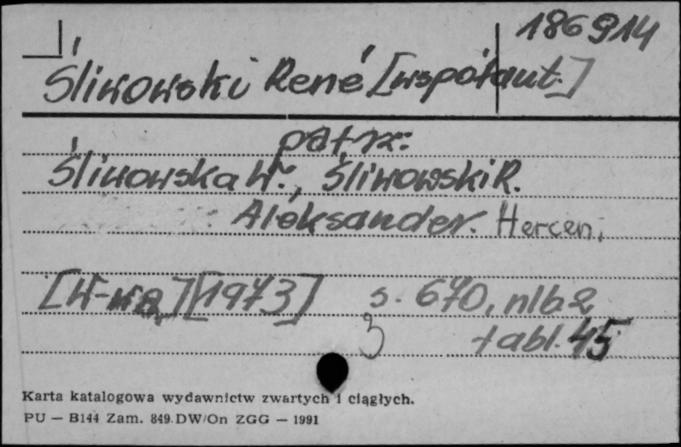 186914
Śliwowski René [współaut.]
patrz:
Śliwowska W., Śliwowski R.
Aleksander Hercen.
[W-wa] [1973] s. 670, nlb 2
3 tabl. 45
Karta katalogowa wydawnictw zwartych i ciągłych.
PU — B144 Zam. 849.DW/On ZGG — 1991